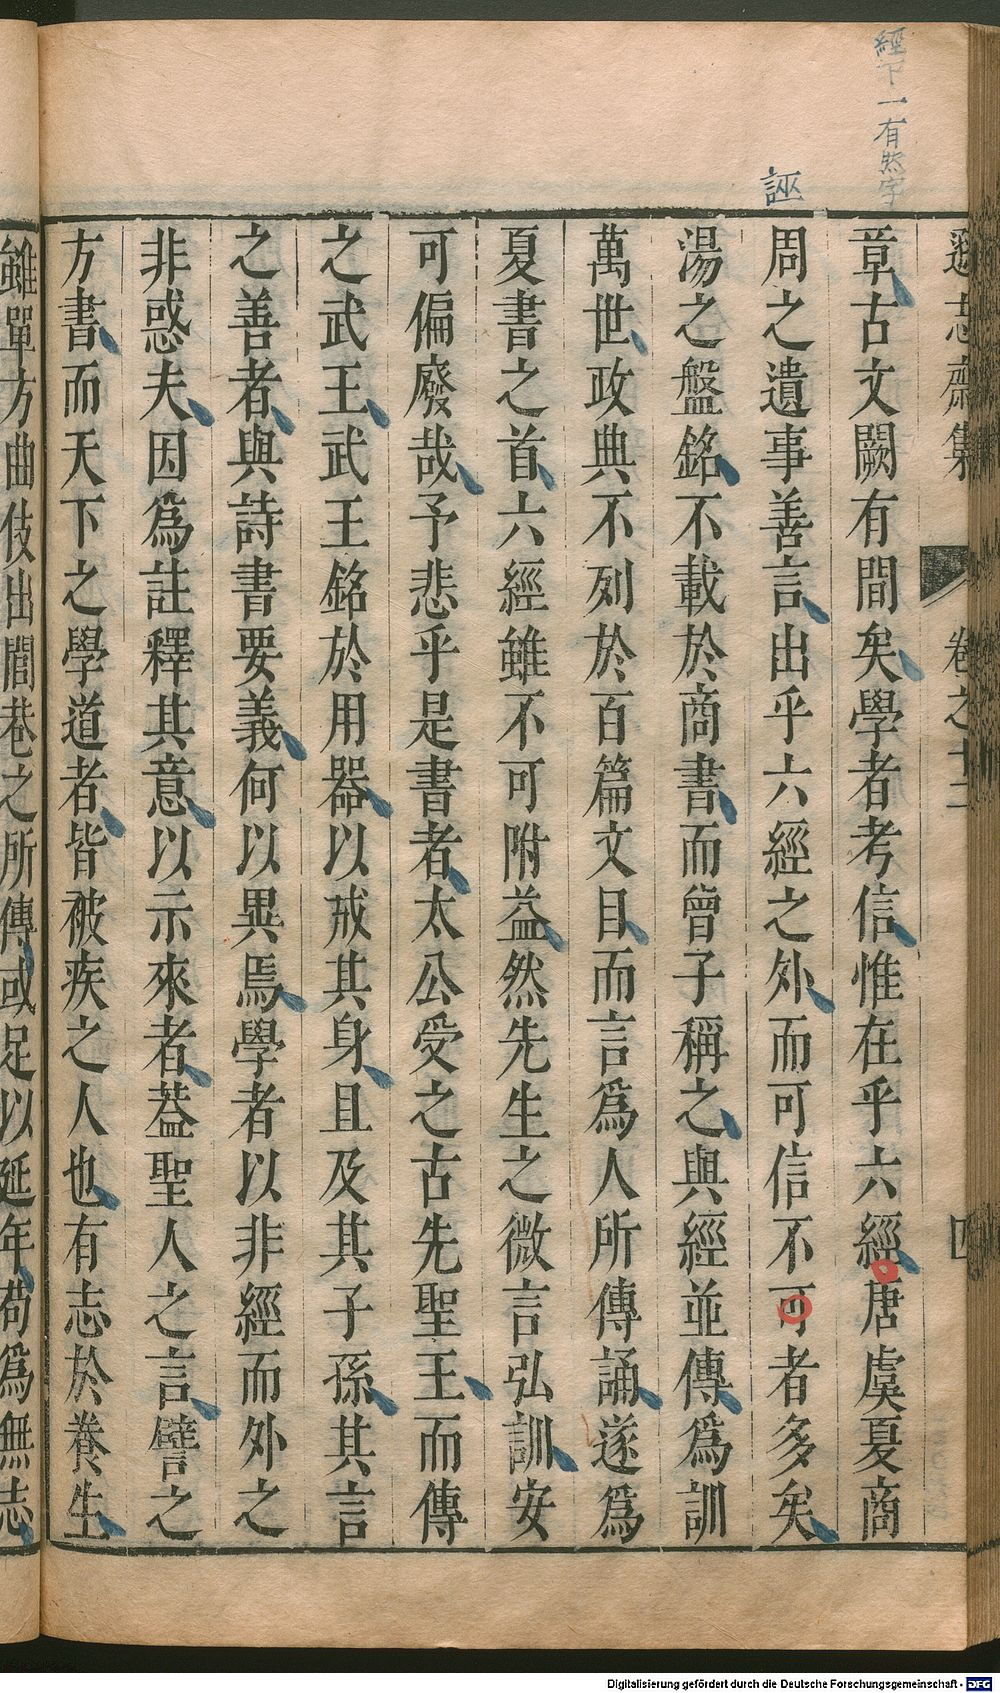 經下一有然字
誣
遜志齋集 卷之十二 四
章古文闕有間矣學者考信惟在乎六經唐虞夏商
周之遺事善言出乎六經之外而可信不可者多矣
湯之盤銘不載於商書而曾子稱之與經並傳爲訓
萬世政典不列於百篇文目而言爲人所傳誦遂爲
夏書之首六經雖不可附益然先生之微言弘訓安
可偏廢哉予悲乎是書者太公受之古先聖王而傳
之武王武王銘於用器以戒其身且及其子孫其言
之善者與詩書要義何以異焉學者以非經而外之
非惑夫因爲註釋其意以示來者葢聖人之言譬之
方書而天下之學道者皆被疾之人也有志於養生
雖單方曲伎出閭巷之所傳或足以延年苟爲無志
Digitalisierung gefördert durch die Deutsche Forschungsgemeinschaft - DFG